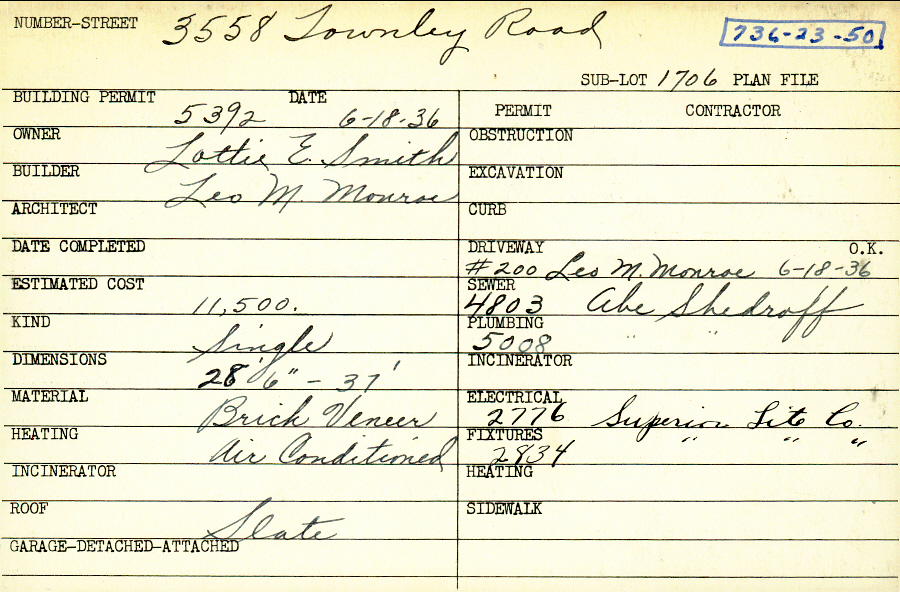 NUMBER-STREET 3558 Townley Road
736-23-50
SUB-LOT 1706 PLAN FILE
BUILDING PERMIT 5392 DATE 6-18-36
OWNER Lottie E. Smith
BUILDER Leo M. Monroe
ARCHITECT
DATE COMPLETED
ESTIMATED COST 11,500.
KIND Single
DIMENSIONS 28' 6" - 37'
MATERIAL Brick Veneer
HEATING Air Conditioned
INCINERATOR
ROOF Slate
GARAGE-DETACHED-ATTACHED
PERMIT CONTRACTOR
OBSTRUCTION
EXCAVATION
CURB
DRIVEWAY O.K.
#200 Leo M. Monroe 6-18-36
SEWER
4803 Abe Shedroff
PLUMBING
5008 " "
INCINERATOR
ELECTRICAL
2776 Superior Lite Co.
FIXTURES
2834 " " "
HEATING
SIDEWALK